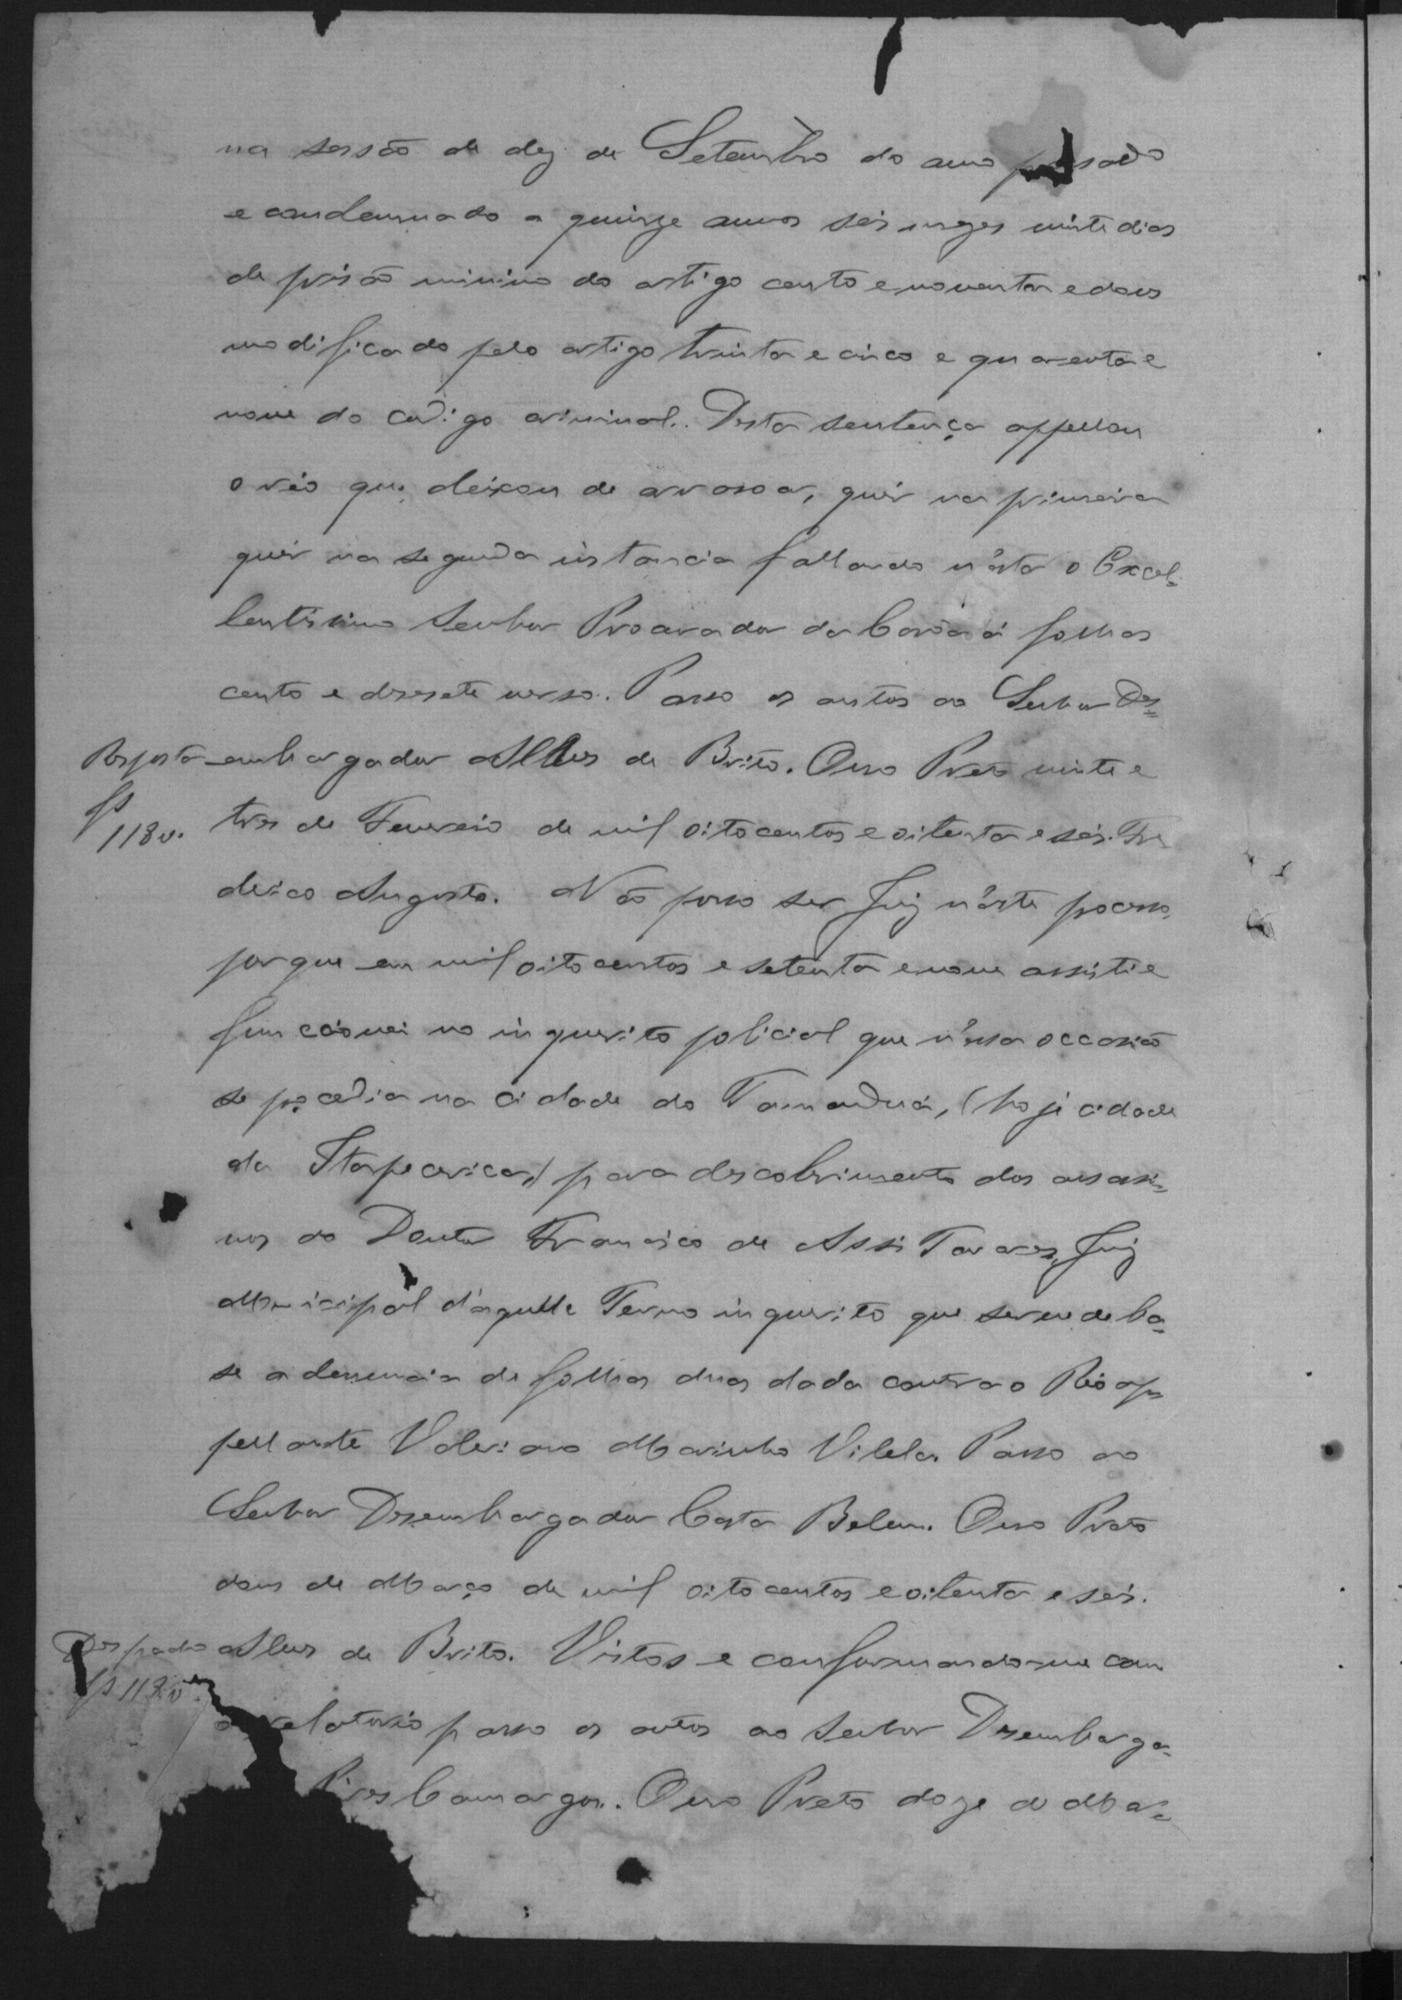 na sessão de dez de Setembro do anno passado
e condemnado a quinze annos seis mezes vinte dias
de prisão minimo do artigo cento e noventa e dous
modificado pelo artigo trinta e cinco e quarenta e
nove do codigo criminal. Desta sentença appellou
o réo que deixou de arrasoar, quér na primeira
quér na segunda instancia fallando n'ésta o Excel-
lentissimo Senhor Procurador da Corôa á folhas
cento e desesete verso. Passo os autos ao Senhor Des=
Resposta embargador Alves de Brito. Ouro Preto vinte e
fs 118v. tres de Fevereiro de mil oitocentos e oitenta e seis. Fre
derico Augusto. Não posso ser Juiz n'éste processo,
porque em mil oitocentos e setenta e nove assisti e
funccionei no inquerito policial que n'éssa occasião
se procedia na cidade do Tamanduá, (hoje cidade
da Itapecerica,) para descobrimento dos assassi=
nos do Doutor Francisco de Assis Tavares, Juiz
Municipal d'aquelle Termo inquerito que serve de ba=
se a denuncia de folhas duas dada contra o Réo ap=
pellante Valeriano Marinho Vilela. Passo ao
Senhor Desembargador Costa Belem. Ouro Preto
dous de Março de mil oitocentos e oitenta e seis.
Despacho Alves de Brito. Vistos e conformando-me com
o relatorio passo os autos ao Senhor Desembarga=
Pires Camargos. Ouro Preto doze de Mar=